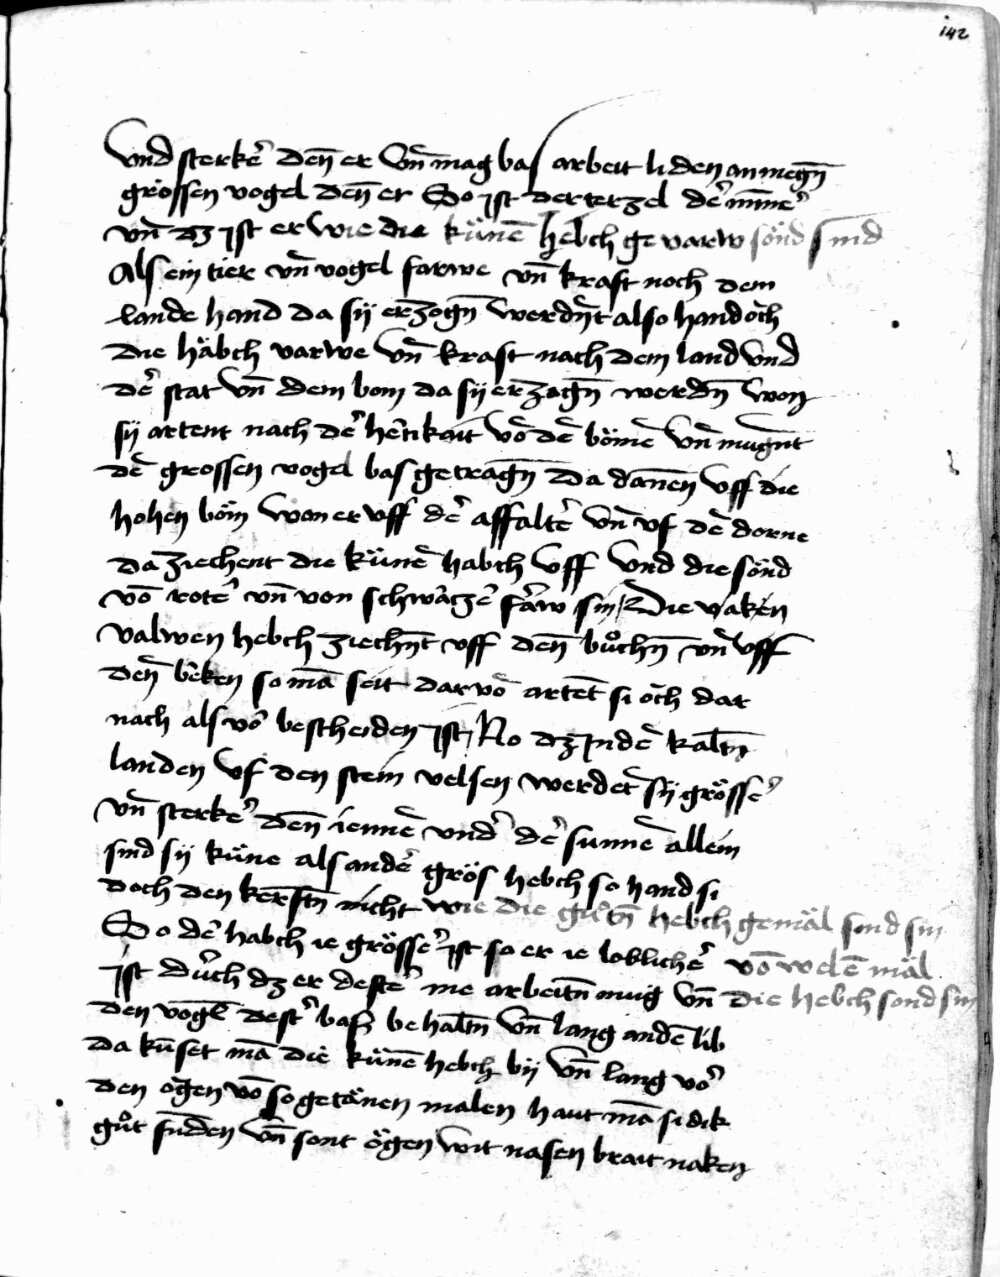 142
vnd sterkeˀ den̄ er vn̄ mag bas arbeit liden an megn̄
grössen vogel den̄ er So jst der terzel deˀ minneˀ
vn̄ dz jst er wie die künē hebch gevarw sönd sind
Als ein tier vn̄ vogel farwe vn̄ kraft noch dem
lande hand da sij erzogn̄ werdn̄t also hand öch
die häbch varwe vn̄ kraft nach dem land vnd
deˀ stat vn̄ dem bom da sij erzogn̄ werdn̄ won
sij artent nach deˀ hertikait vō dē bömē vn̄ mugn̄t
dē grossen vogel bas getragn̄ da dan̄en vff die
hohen böm won er vff deˀ affalteˀ vn̄ vf dē dorne
da ziechent die künē habch vff vnd die sönd
vō roteˀ vn̄ von schwarzeˀ farw sin Die
valwen hebch ziechn̄t vff den̄ bůchn̄ vn̄ vff
den̄ beken so mā seit darvō artet si öch dar
nach als voˀ bescheiden jst No dz jn dē kaltn̄
landen vf den stein velsen werdet sij grösseˀ
vn̄ sterkeˀ den̄ iennē vndˀ deˀ sunnē allein
sind sij küne als andeˀ grös hebch so hand si
doch den kerstn̄ nicht wie die gůtn̄ hebch gemäl sind sin
So deˀ habch ie grösseˀ jst so er ie loblicheˀ vō welē mäl
jst durch dz er desteˀ me arbeitn̄ mug vn̄ die hebch sond sin
den vogl̄ destˀ bas behaltn̄ vn̄ lang an dē lib
da kūset mā die künē hebch bij vn̄ lang voˀ
den ögen vō so getänen malen haut mā si dik
gůt funden vn̄ sont ögen wit nasen brait naken